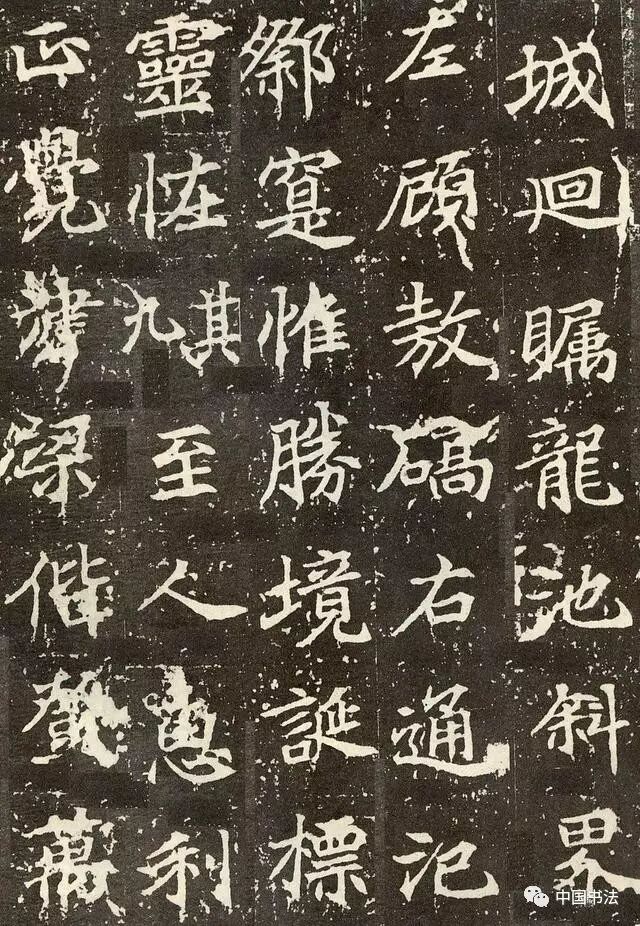 城迴矚龍池斜界
左顧敖碻右通汜
寔惟勝境誕標
靈恠其九至人惠利
正覺津梁偕登萬
中国书法